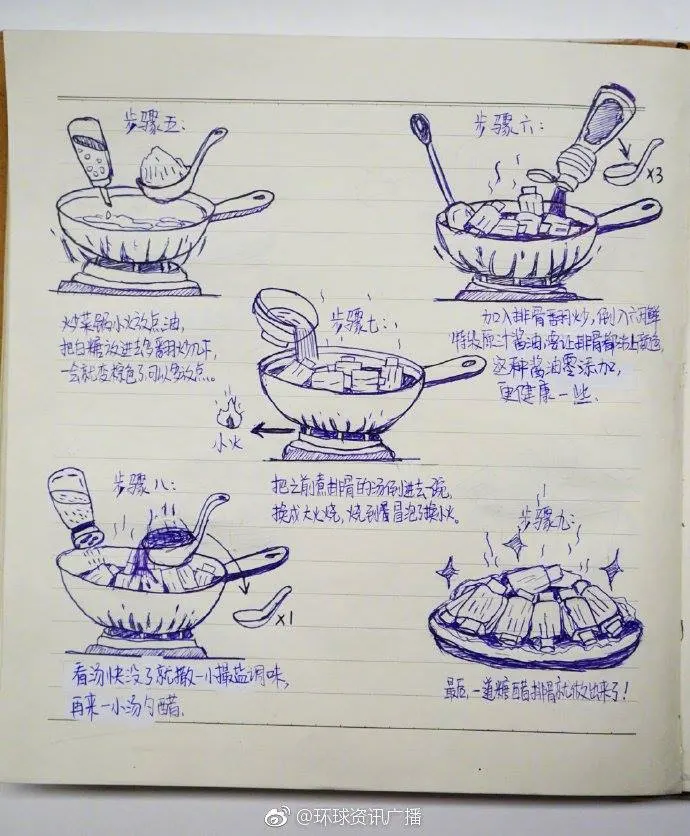 步骤五:
炒菜锅小火放点油,
把白糖放进去多翻炒几下,
一会就变棕色了可以多放点。
步骤六:
x3
加入排骨翻炒,倒入六月鲜
特级原汁酱油,要让排骨都沾上颜色,
这种酱油零添加,
更健康一些.
步骤七:
小火
把之前煮排骨的汤倒进去一碗,
换成大火烧,烧到看冒泡了换小火。
步骤八:
x1
看汤快没了就撒一小撮盐调味,
再来一小汤勺醋.
步骤九:
最后,一道糖醋排骨就做出来了!
@环球资讯广播